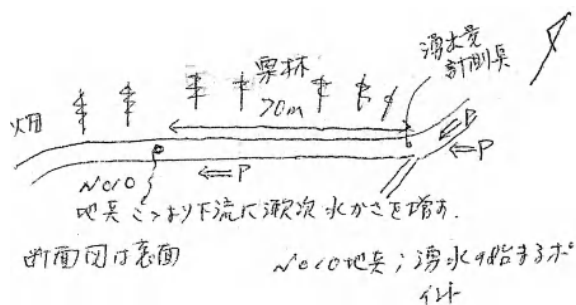 湧水量
計測点
栗林
70m
畑
P
P
No10
P
地点こゝより下流に漸次水かさを増す.
断面図は裏面
No10地点;湧水の始まるポ
イント